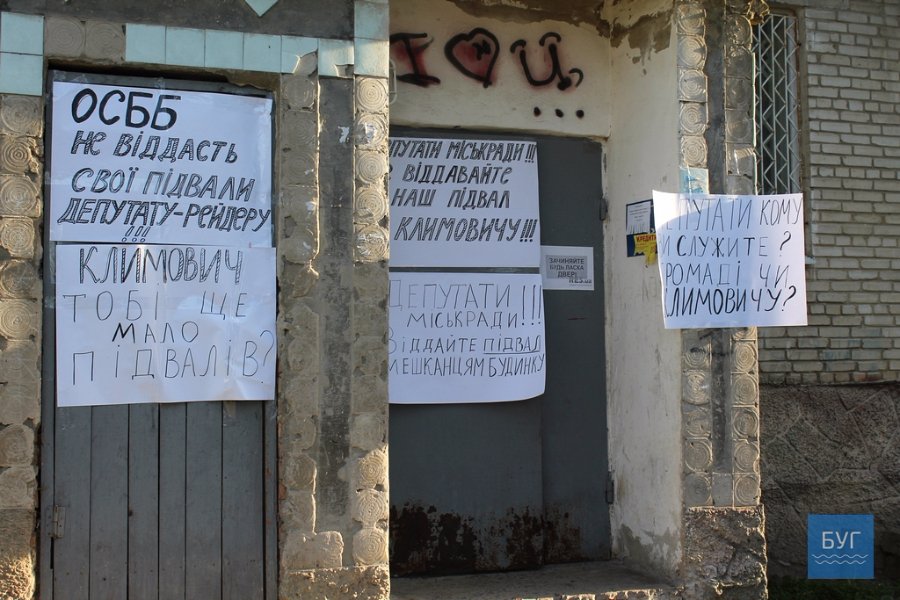 ОСББ
НЕ ВІДДАСТЬ
СВОЇ ПІДВАЛИ
ДЕПУТАТУ-РЕЙДЕРУ
!!!
КЛИМОВИЧ
ТОБІ ЩЕ
МАЛО
ПІДВАЛІВ?
I ❤ U
...
ПУТАТИ МІСЬКРАДИ!!!
ВІДДАВАЙТЕ
НАШ ПІДВАЛ
КЛИМОВИЧУ!!!
ЗАЧИНЯЙТЕ
БУДЬ ЛАСКА
ДВЕРІ
ДЕПУТАТИ
МІСЬКРАДИ!!!
ВІДДАЙТЕ ПІДВАЛ
МЕШКАНЦЯМ БУДИНКУ
КРЕДИТ
ПУТАТИ КОМУ
И СЛУЖИТЕ?
РОМАДІ ЧИ
КЛИМОВИЧУ?
БУГ